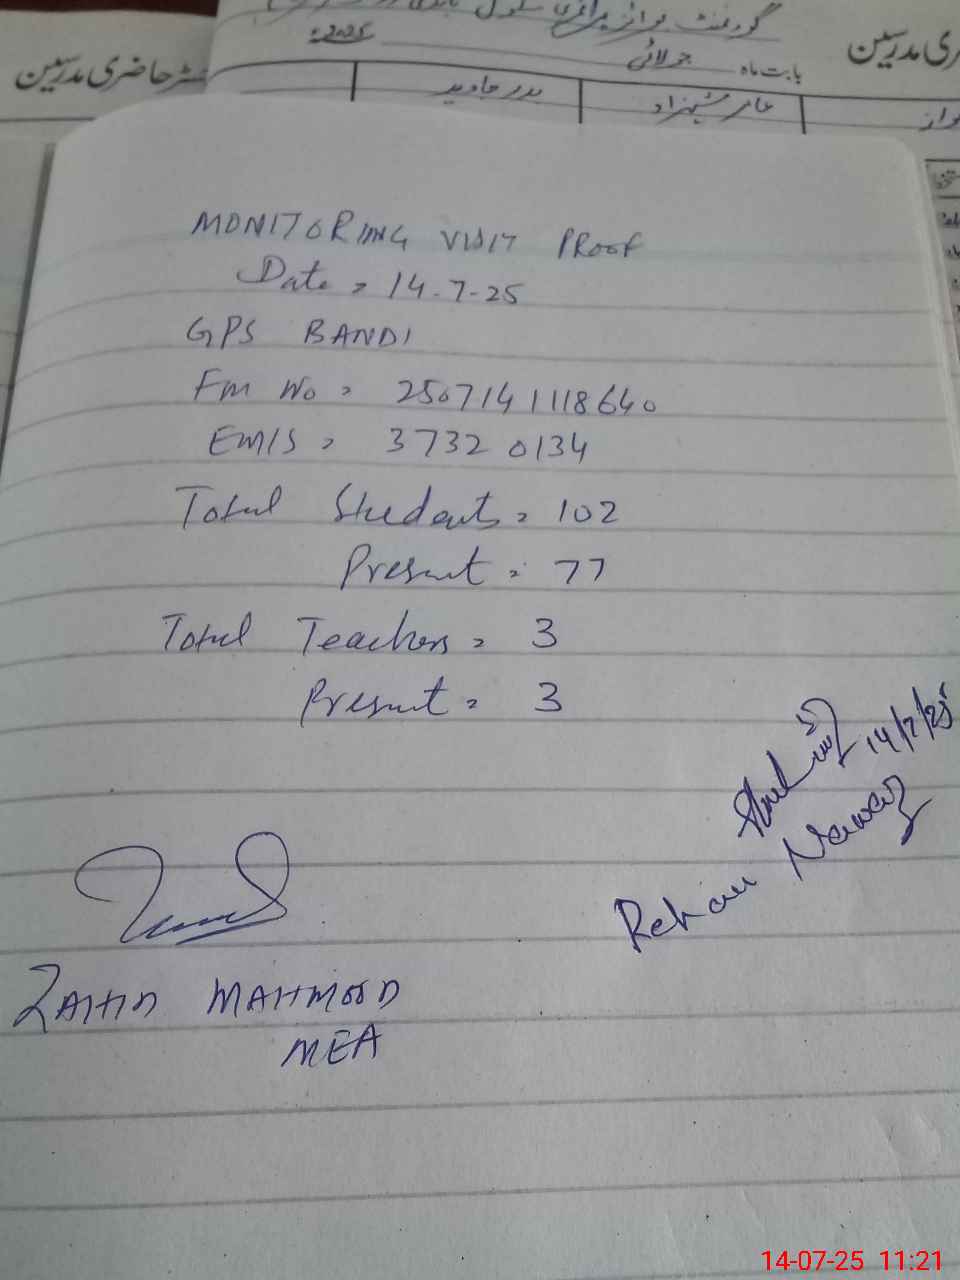 گورنمنٹ بوائز پرائمری سکول
ری مدرسین
بابت ماہ جولائی 2025ء
ٹر حاضری مدرسین
عامر شہزاد
بدر جاوید
MONITORING VISIT PROOF
Date = 14-7-25
GPS BANDI
Fm No = 2507141118640
EMIS = 37320134
Total Students = 102
Present = 77
Total Teachers = 3
Present = 3
14/7/25
Rehan Nawaz
ZAHID MAHMOOD
MEA
14-07-25 11:21